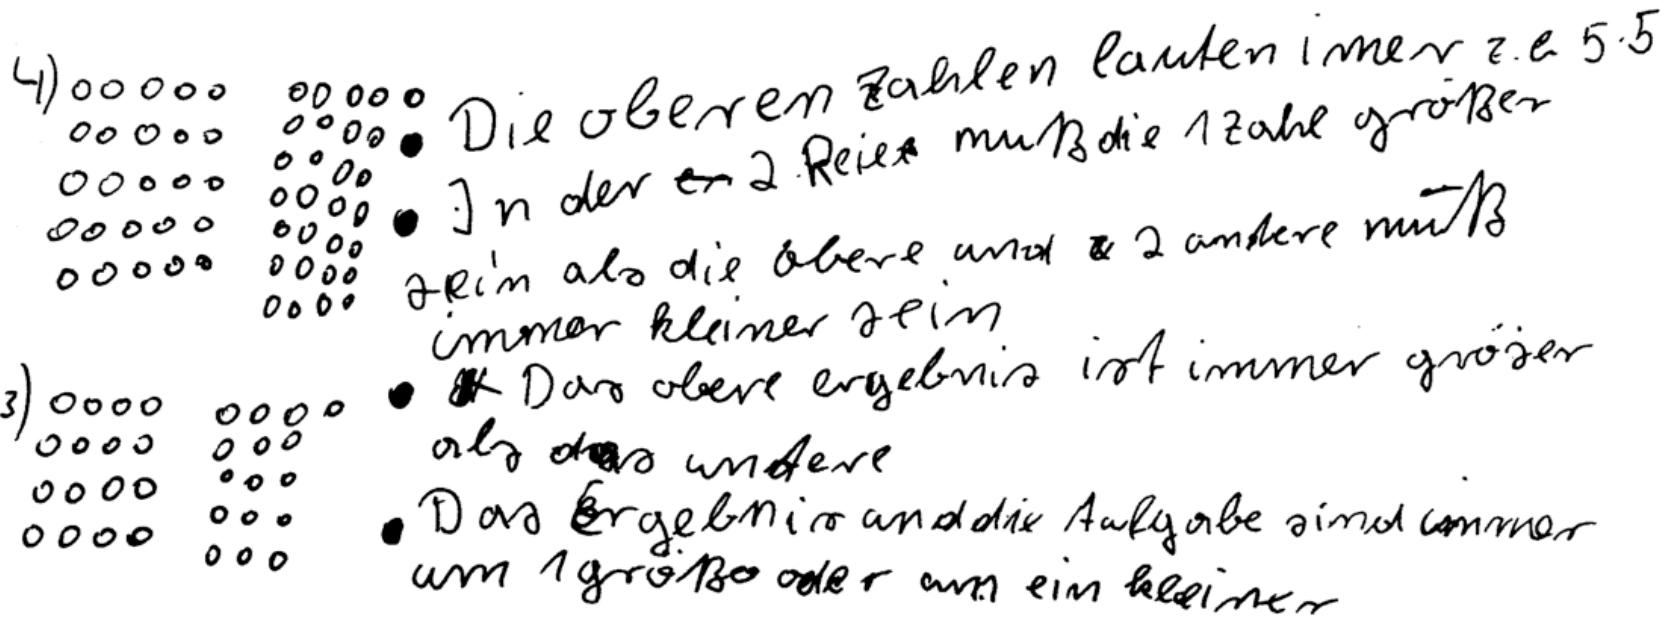 4)
Die oberen Zahlen lauten imer z.B 5·5
In der 2. Reie muß die 1 Zahl größer
sein als die obere und 2 andere muß
immer kleiner sein
3)
Das obere ergebnis ist immer gröser
als das undtere
Das Ergebnis und die Aufgabe sind immer
um 1 größe oder um ein kleiner